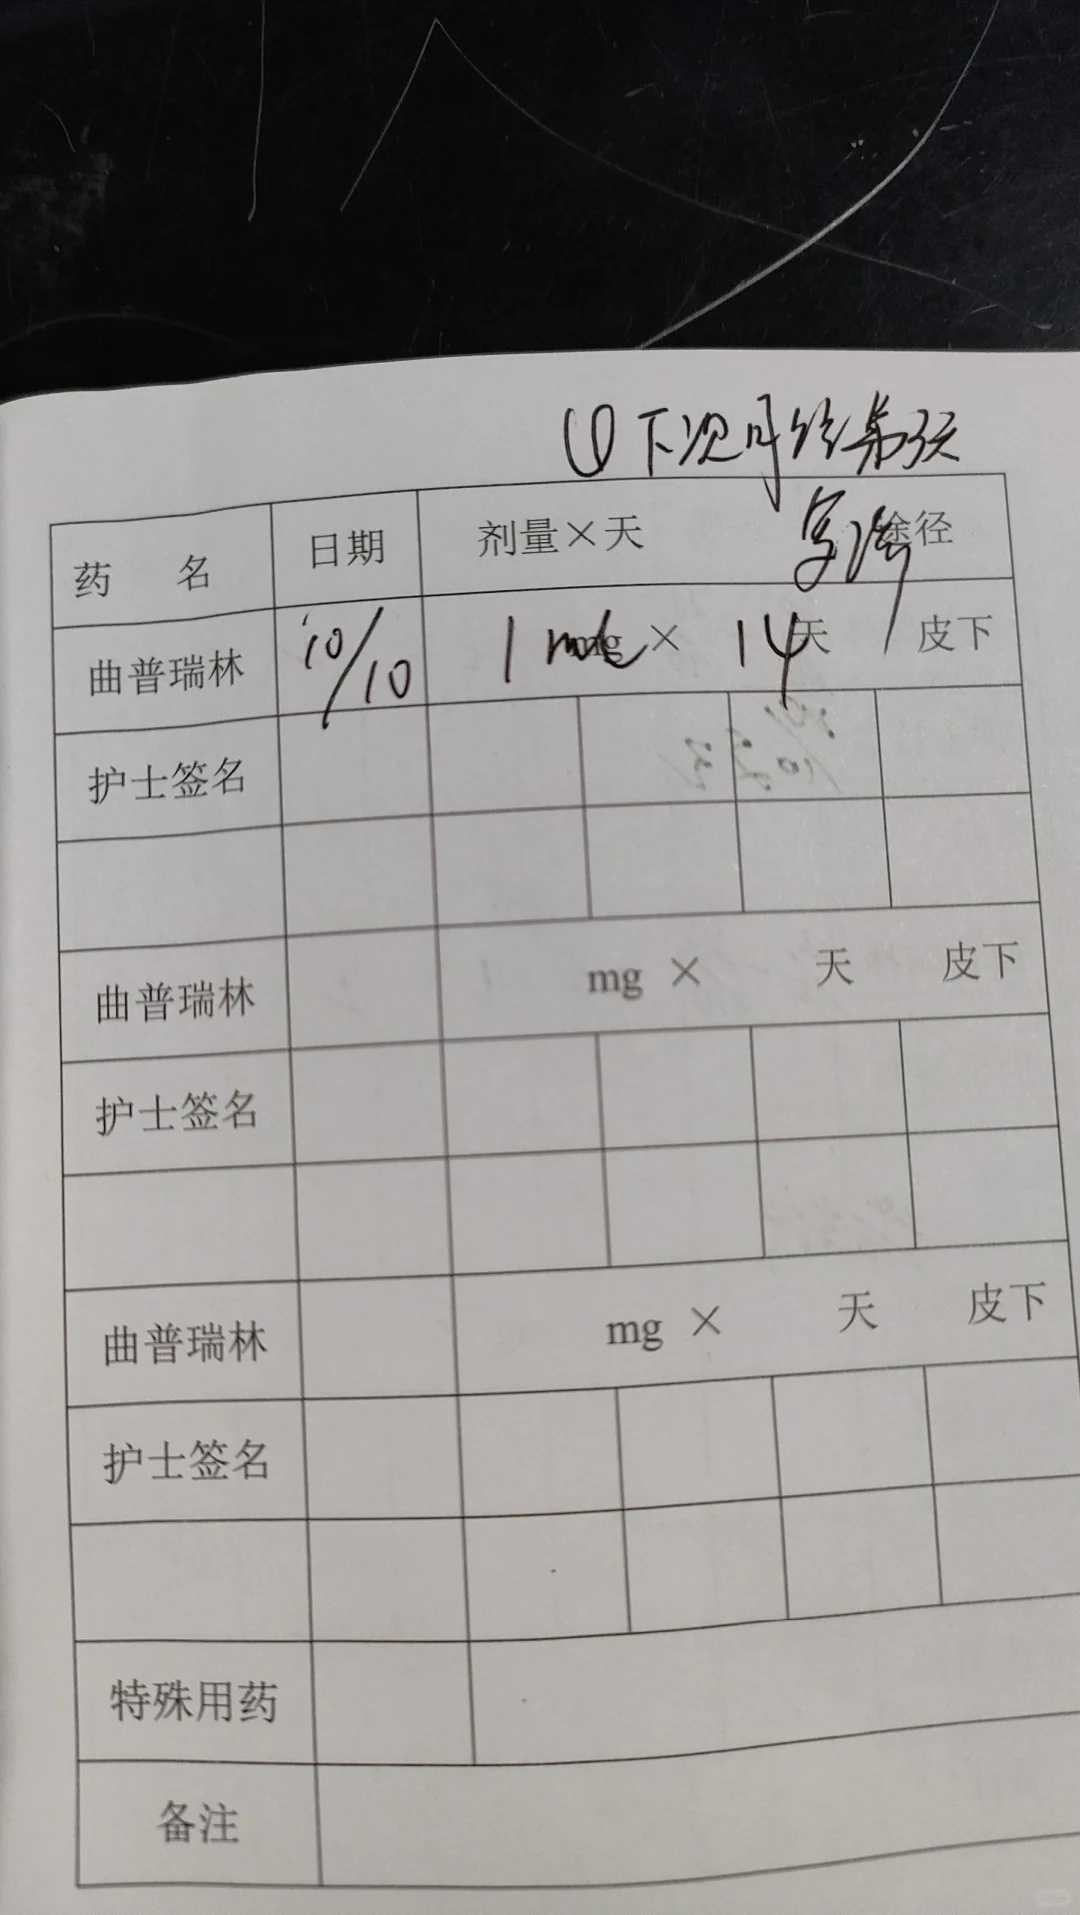 ①下次月经第3天
药 名 日期 剂量×天 途径
曲普瑞林 10/10 1 × 14天 皮下
护士签名
曲普瑞林 mg × 天 皮下
护士签名
曲普瑞林 mg × 天 皮下
护士签名
特殊用药
备注